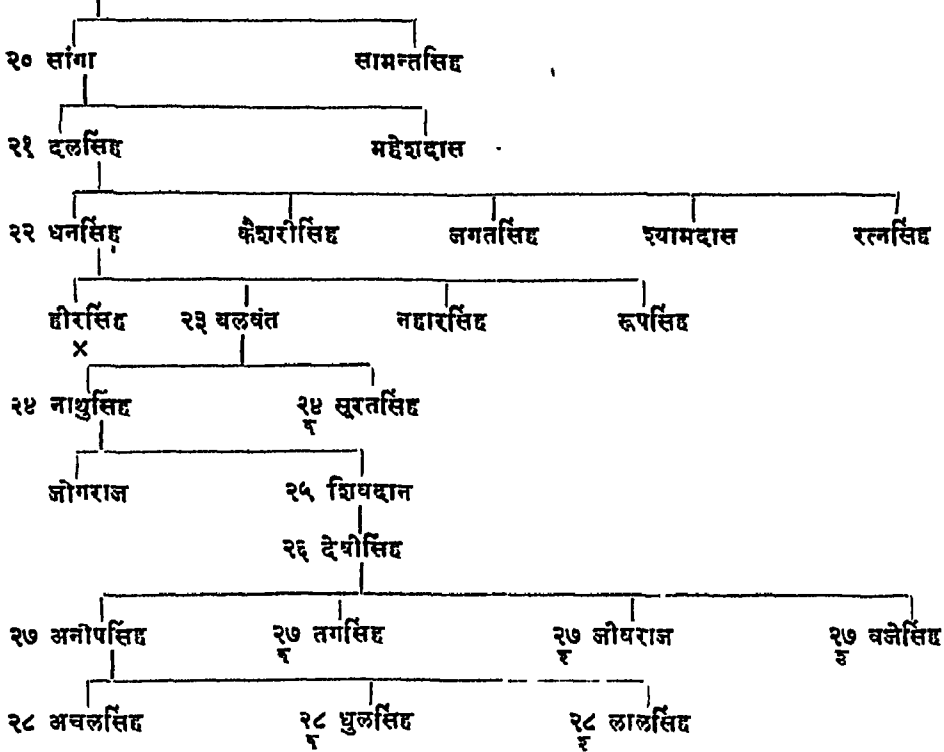 २० सांगा सामन्तसिंह
२१ दलसिंह महेशदास
२२ धनसिंह कैशरीसिंह जगतसिंह श्यामदास रत्नसिंह
हीरसिंह २३ बलवंत नहारसिंह रूपसिंह
×
२४ नाथुसिंह २४ सूरतसिंह
जोगराज २५ शिवदान
२६ देवीसिंह
२७ अनोपसिंह २७ तगसिंह २७ जीवराज २७ वजेसिंह
२८ अचलसिंह २८ धुलसिंह २८ लालसिंह